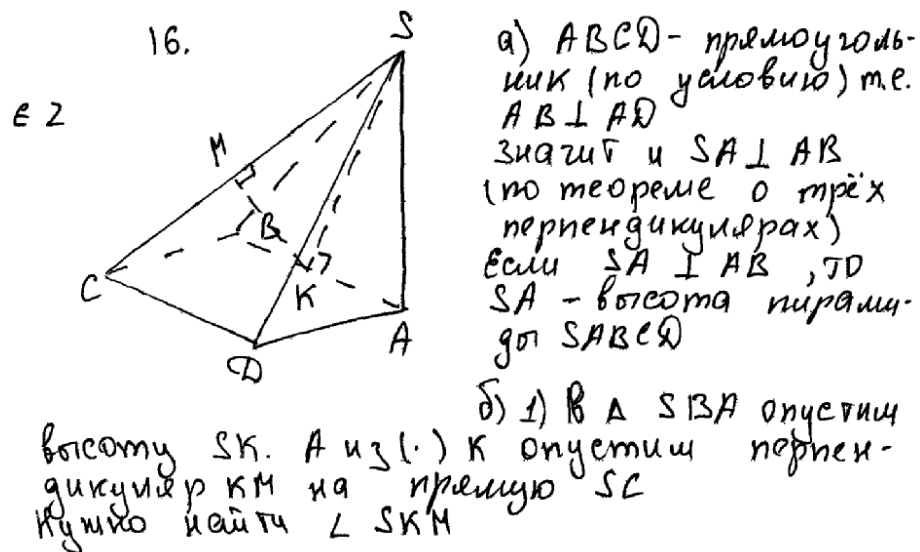 16.
є 2
S
M
B
C
K
D
A
а) ABCD - прямоуголь-
ник (по условию) т.е.
AB ⊥ AD
значит и SA ⊥ AB
(по теореме о трёх
перпендикулярах)
Если SA ⊥ AB, то
SA - высота пирами-
ды SABCD
б) 1) В Δ SBA опустим
высоту SK. А из (·) К опустим перпен-
дикуляр KM на прямую SC
Нужно найти ∠ SKM